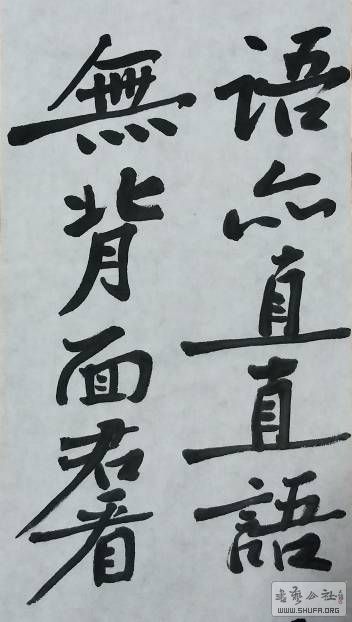 語心直直語
無背面君看
书艺公社
WWW.SHUFA.ORG